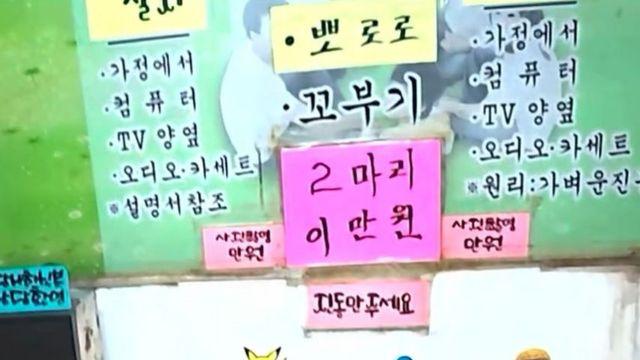 ·가정에서
·컴퓨터
·TV 양옆
·오디오·카세트
※설명서참조
·뽀로로
·꼬부기
2마리
이만원
·가정에서
·컴퓨터
·TV 양옆
·오디오·카세트
※원리:가벼운진
사진촬영
만원
사진촬영
만원
진동만주세요